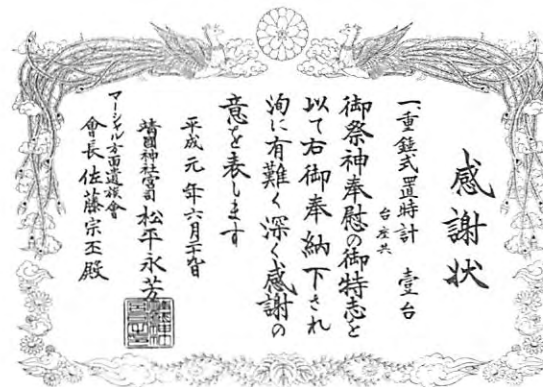 感謝状
一、重錘式置時計 壹台
台座共
御祭神奉慰の御特志を
以て右御奉納下され
洵に有難く深く感謝の
意を表します
平成元年六月
靖國神社宮司 松平永芳
マーシャル方面遺族會
會長 佐藤宗丕殿